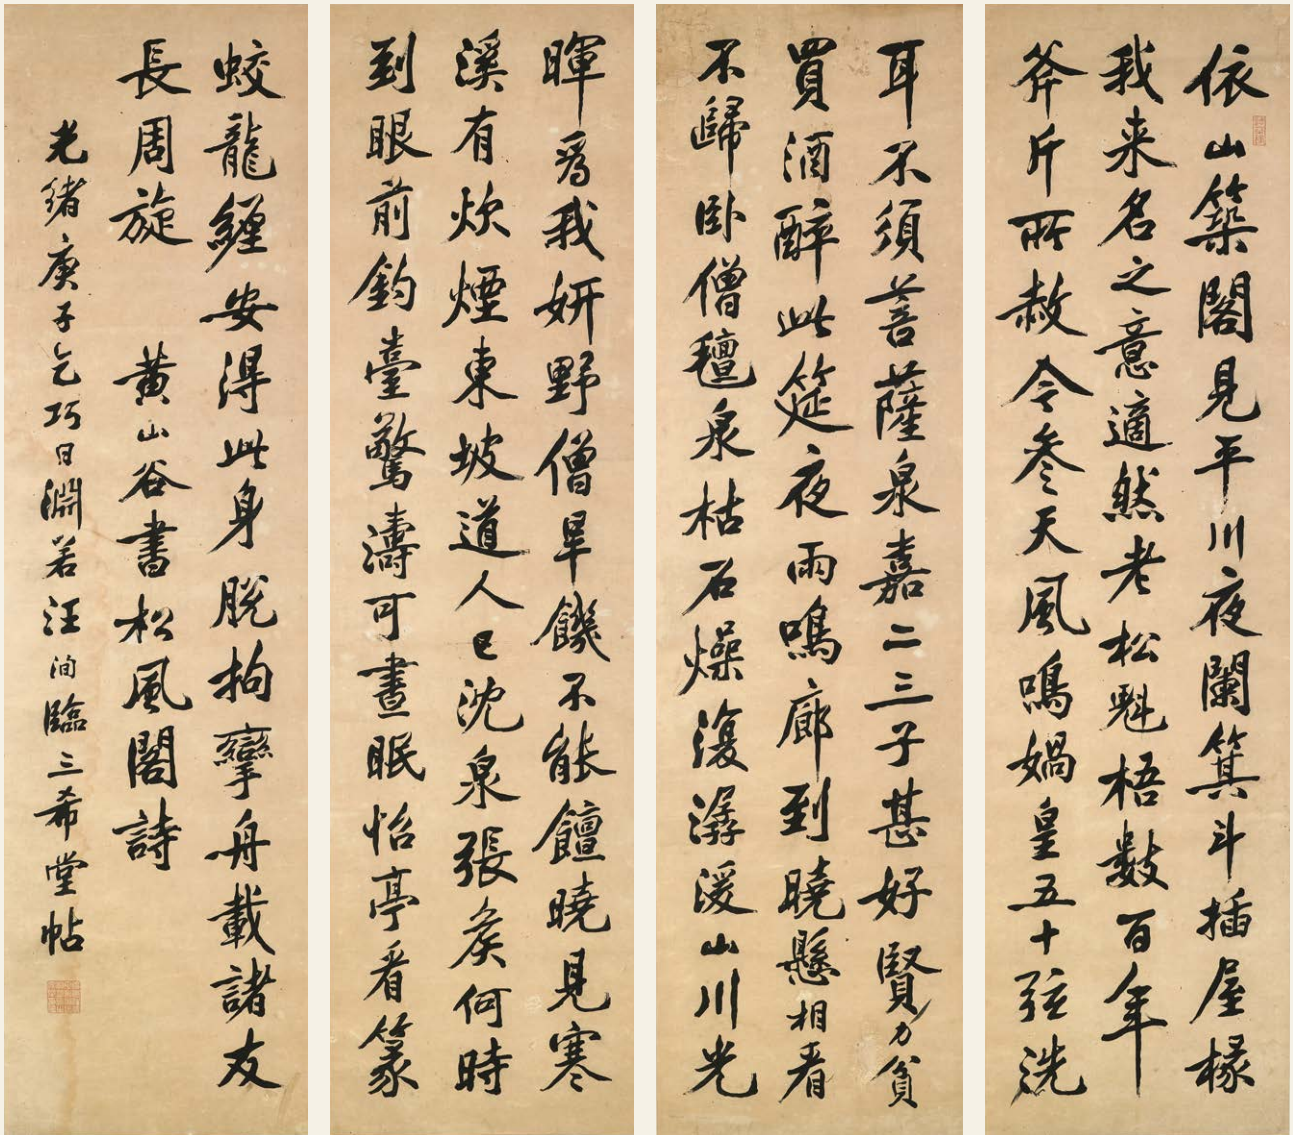 依山築閣見平川夜闌箕斗插屋椽
我来名之意適然老松魁梧數百年
斧斤所赦令參天風鳴媧皇五十弦洗
耳不須菩薩泉嘉二三子甚好賢力貧
買酒醉此筵夜雨鳴廊到曉懸相看
不歸卧僧氊泉枯石燥復潺湲山川光
暉爲我妍野僧旱饑不能饘曉見寒
溪有炊煙東坡道人已沈泉張矦何時
到眼前釣臺驚濤可晝眠怡亭看篆
蛟龍纏安得此身脫拘攣舟載諸友
長周旋 黄山谷書松風閣詩
光緒庚子乞巧日淵若汪洵臨三希堂帖